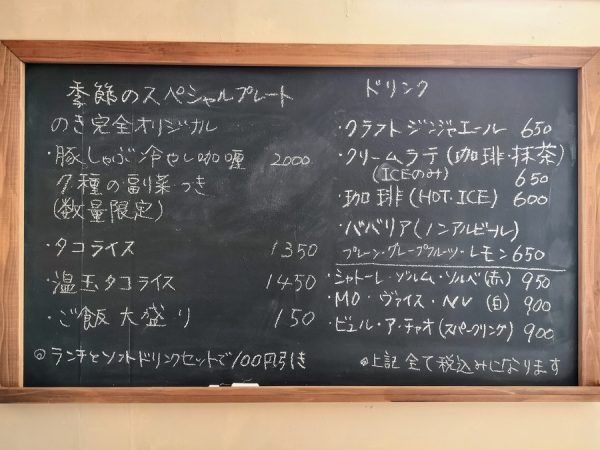 季節のスペシャルプレート
のき完全オリジナル
・豚しゃぶ冷やし咖喱 2000
7種の副菜つき
(数量限定)
・タコライス 1350
・温玉タコライス 1450
・ご飯大盛り 150
◎ランチとソフトドリンクセットで100円引き
ドリンク
・クラフトジンジャエール 650
・クリームラテ(珈琲・抹茶)
(ICEのみ) 650
・珈琲(HOT・ICE) 600
・ババリア(ノンアルビール)
プレーン・グレープフルーツ・レモン 650
・シャトーレ・ゾルム・ソルベ(赤) 950
・MO・ヴァイス・NV(白) 900
・ビュル・ア・チャオ(スパークリング) 900
◎上記全て税込みになります